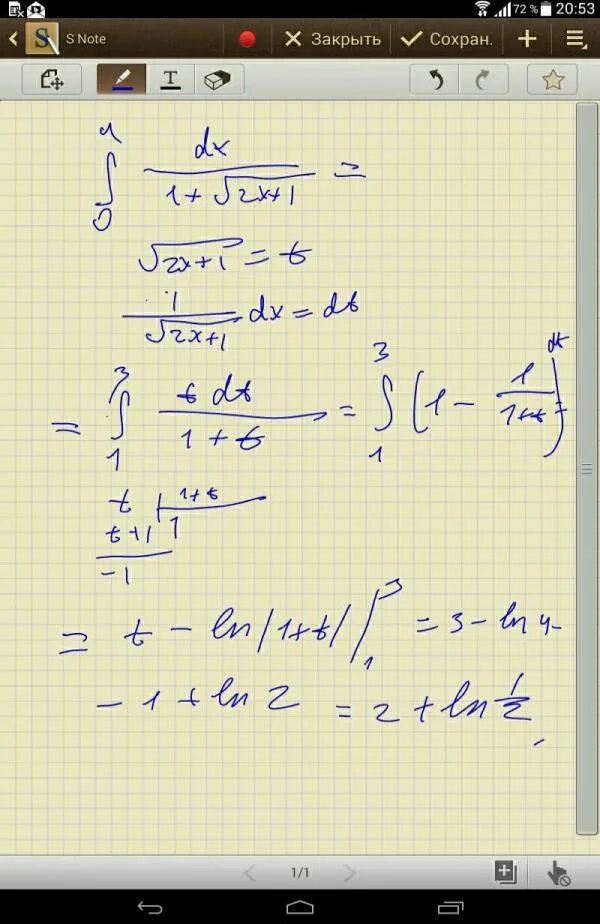 72 % 20:53
S Note Закрыть Сохран.
T
∫₀⁴ dx / (1 + √(2x+1)) =
√(2x+1) = t
1 / √(2x+1) dx = dt
= ∫₁³ t dt / (1 + t) = ∫₁³ (1 − 1/(1+t)) dt =
t | 1+t
t+1 | 1
−1
= t − ln|1+t| |₁³ = 3 − ln 4 −
− 1 + ln 2 = 2 + ln 1/2
1/1